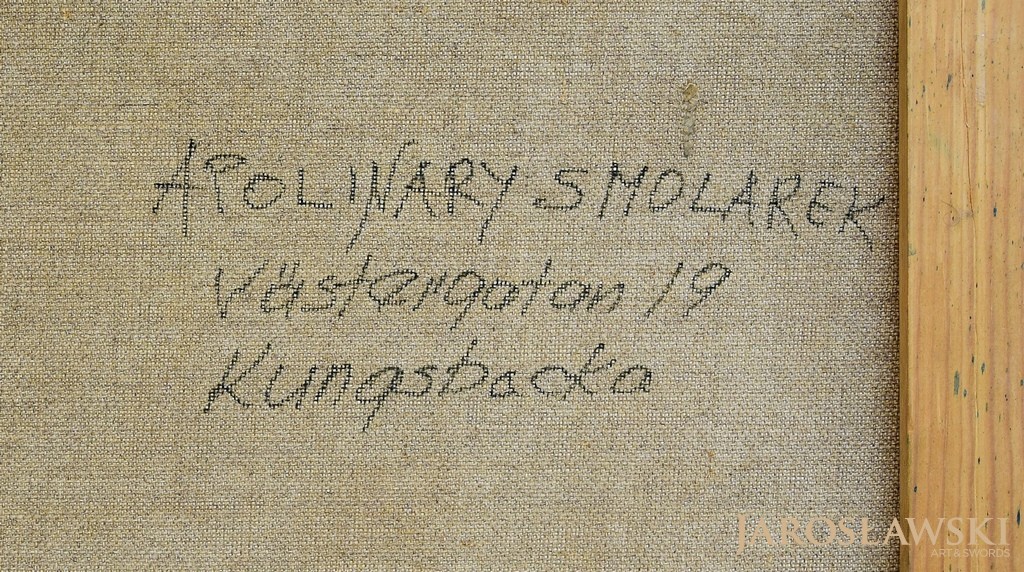 APOLINARY SMOLAREK
Västergatan 19
Kungsbacka
JAROSŁAWSKI
ART & SWORDS